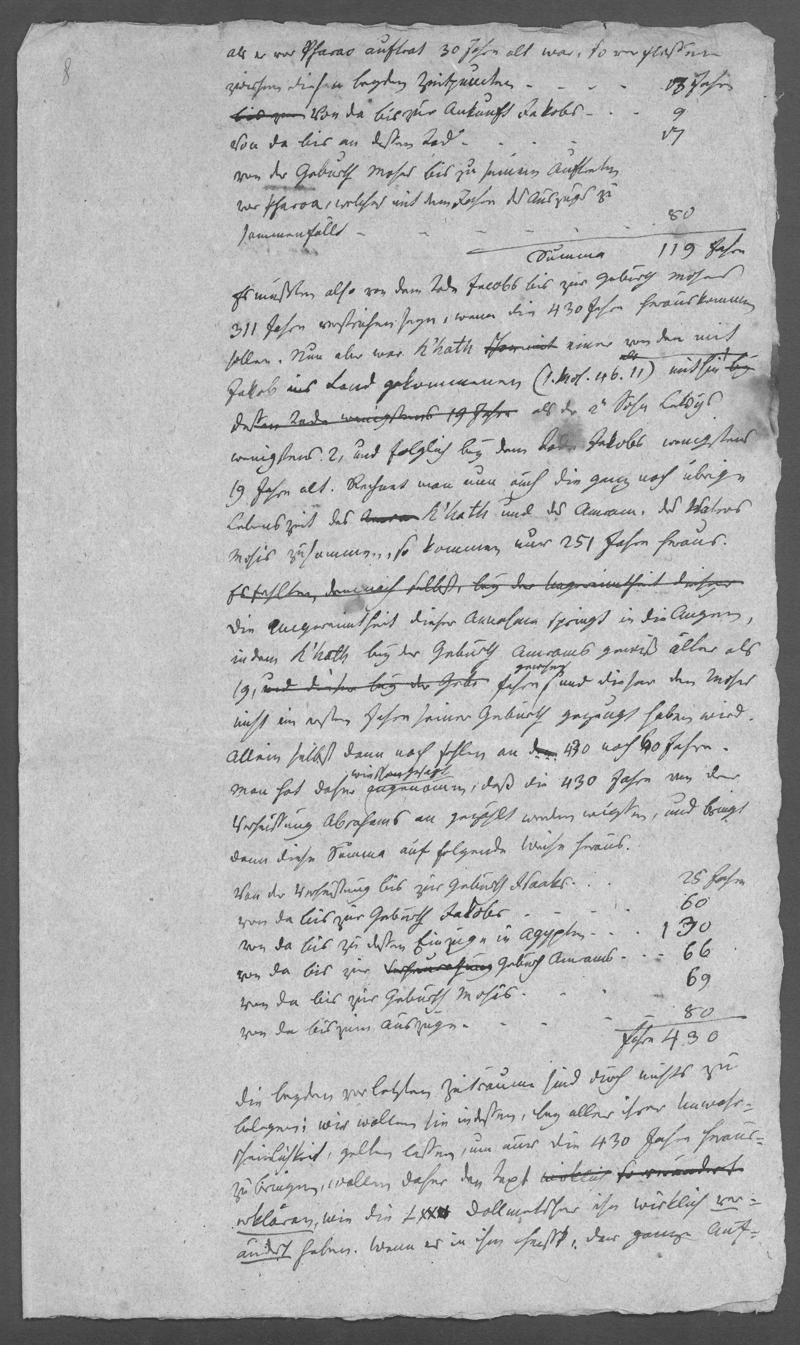 8
als er vor Pharao auftrat 30 Jahre alt war, so verflossen
zwischen diesen beyden Zeitpuncten - - - - 13 Jahre
bis zu Von da bis zur Ankunft Jakobs - - - 9
Von da bis an dessen Tod - - - - 17
von der Geburth Moses bis zu seinem Auftreten
vor Pharao, welches mit dem Jahre des Auszugs zu
sammenfällt - - - - - - - 80
Summa 119 Jahre
Es müßten also von dem Tode Jacobs bis zur Geburth Moses
311 Jahre verstrichen seyn, wenn die 430 Jahre herauskommen
sollen. Nun aber war K'hath einer von den mit
Jakob ins Land gekommenen (1. Mos. 46. 11) mithin bey
dessen Tode wenigstens 19 Jahr als der 2te Sohn Levys
wenigstens 2, und folglich bey dem Tode Jakobs wenigstens
19 Jahre alt. Rechnet man nun auch die ganz noch übrige
Lebenszeit des K'hath und des Amram, des Vaters
Mosis zusammen, so kommen nur 251 Jahre heraus.
Es fehlten demnach selbst, bey der Ungereimtheit dieser
Die Ungereimtheit dieser Annahme springt in die Augen,
indem K'hath bey der Geburth Amrams gewiß älter als
19, und dieser bey der Gebu Jahre gewesen und dieser den Moses
nicht im ersten Jahre seiner Geburth gezeugt haben wird.
Allein selbst dann noch fehlen an den 430 noch 60 Jahre.
Man hat daher angenommen, daß die 430 Jahre von der
Verheissung Abrahams an gezählt werden müssen, und bringt
denn diese Summa auf folgende Weise heraus.
Von der Verheissung bis zur Geburth Isaaks - - 25 Jahre
von da bis zur Geburth Jakobs - - - - 60
von da bis zu dessen Einzuge in Agypten - - - 130
von da bis zur Geburth Amrams - - - 66
von da bis zur Geburth Mosis - - - 69
von da bis zum Auszuge - - - - - 80
Jahre 430
Die beyden vorletzten Zeiträume sind durch nichts zu
belegen; wir wollen sie indessen, bey aller ihrer Unwahr-
scheinlichkeit, gelten lassen, um nur die 430 Jahre heraus-
zubringen, wollen daher den Text wirklich so verändert
erklären, wie die LXX Dollmetscher ihn wirklich ver-
ändert haben. Wenn es in ihm heisst: der ganze Auf-